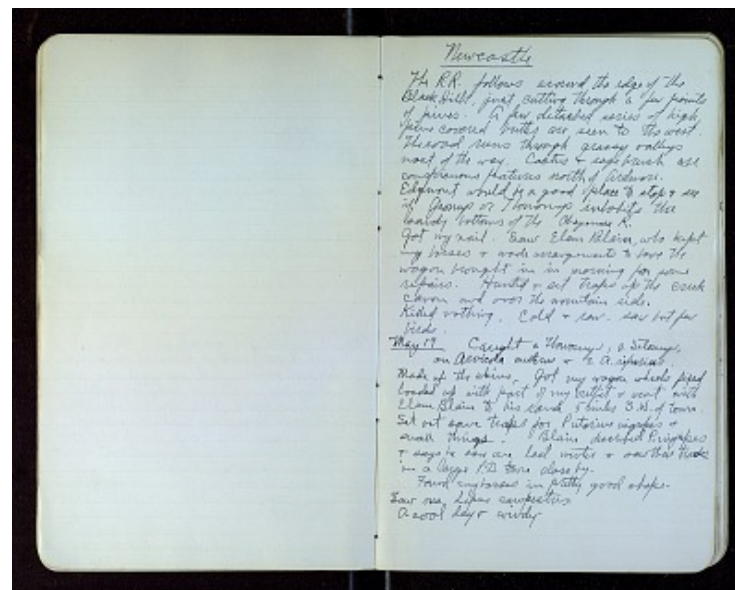 Newcastle
The R.R. follows around the edge of the
Black Hills, just cutting through a few points
of pines. A few detached series of high
pine covered buttes are seen to the west.
The road runs through grassy valleys
most of the way. Cactus + sagebrush are
conspicuous features north of Ardmore.
Edgmont would be a good place to stop + see
if Geomys or Thomomys inhabits the
sandy bottoms of the Cheyenne R.
Got my mail. Saw Elam Blain, who kept
my horses + made arrangements to have the
wagon brought in in morning for some
repairs. Hunted + set traps up the creek
canon and over the mountain side.
Killed nothing. Cold + raw. saw but few
birds.
May 19 Caught a Thomomys,
an Arvicola + 2
Made up the skins, Got my wagon wheels fixed
loaded up with part of my outfit + went with
Elam Blain to his ranch 5 miles S.W. of town.
Set out some traps for Putorius nigripes +
small things. Blain described P. nigripes
+ says he saw one last winter + saw their tracks
in a large P.D. town close by.
Found my horses in pretty good shape.
Saw Lepus campestris
A cool day + windy